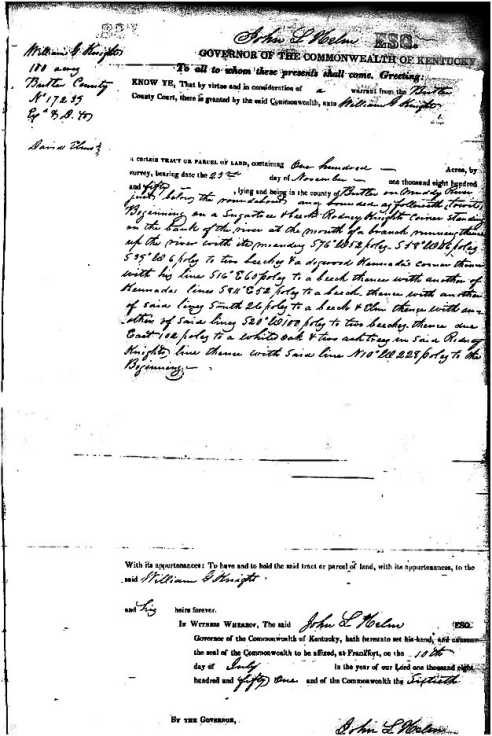 John L Helm ESQ.
GOVERNOR OF THE COMMONWEALTH OF KENTUCKY
To all to whom these presents shall come, Greeting:
William G Knights
100 acres
Butler County
No 17239
David
KNOW YE, That by virtue and in consideration of a warrant from the Butler
County Court, there is granted by the said Commonwealth, unto William G Knight
A CERTAIN TRACT OR PARCEL OF LAND, containing One hundred Acres, by
survey, bearing date the 23rd day of November one thousand eight hundred
and fifty, lying and being in the county of Butler on Muddy River
just below the and bounded as followeth, towit,
Beginning on a Sugartree & beech Rodney Knights Corner standing
on the bank of the river at the mouth of a branch running thence
up the river with its meanders S76°W52 poles S58°W86 poles
S39°W 6 poles to two beeches & a dogwood Kennadas corner thence
with his line S16°E60 poles to a beech thence with another of
Kennadas lines S811°E52 poles to a beech thence with another
of said lines South 26 poles to a beech & Elm thence with an-
other of said lines S20°W100 poles to two beeches thence due
East 102 poles to a white oak & two ash trees in said Rodney
Knights line thence with said line N10°W228 poles to the
Beginning
With its appurtenances: To have and to hold the said tract or parcel of land, with its appurtenances, to the
said William G Knight
and his heirs forever.
IN WITNESS WHEREOF, The said John L Helm ESQ.
Governor of the Commonwealth of Kentucky, hath hereunto set his hand, and caused
the seal of the Commonwealth to be affixed, at Frankfort, on the 10th
day of July in the year of our Lord one thousand eight
hundred and fifty One and of the Commonwealth the Sixtieth
BY THE GOVERNOR,
John L Helm